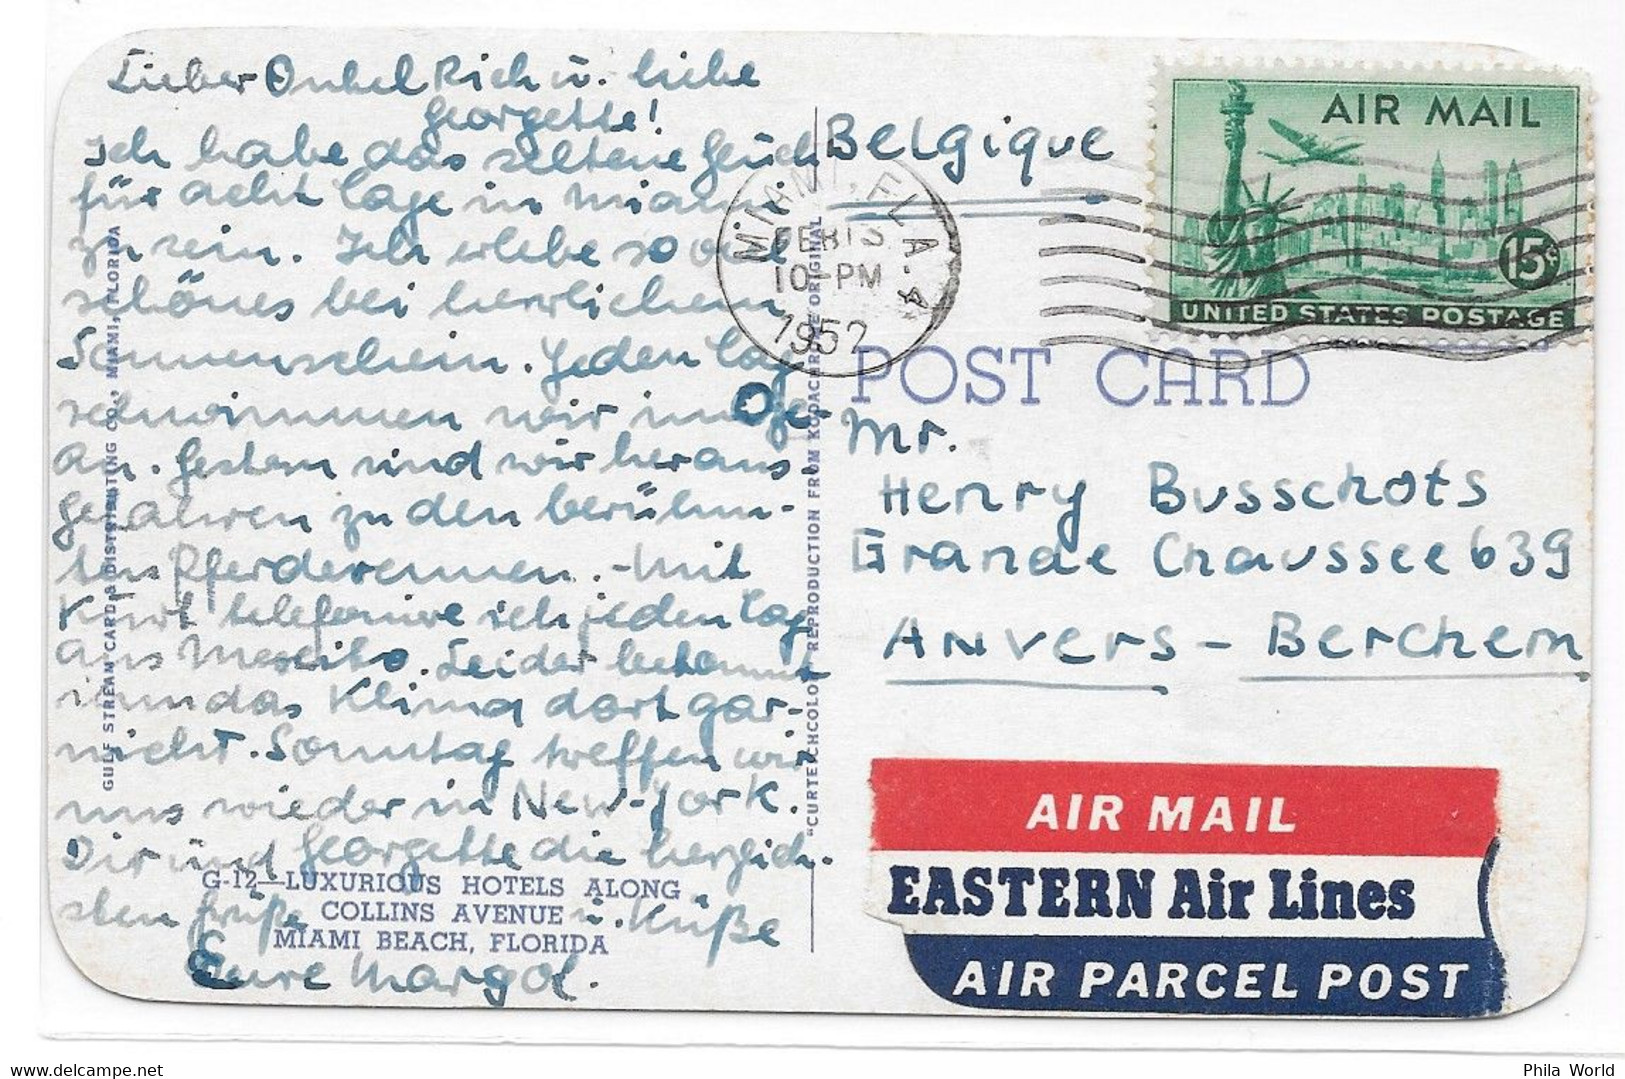 Lieber Onkel Rich u. liebe
Georgette!
Ich habe das seltene Glück
für acht Tage in Miami
zu sein. Ich erlebe so viel
schönes bei herrlichem
Sonnenschein. Jeden Tag
schwimmen wir im Oze-
an. Gestern sind wir heraus
gefahren zu den berühm-
ten Pferderennen. - Mit
Kurt telefoniere ich jeden Tag
aus Mexiko. Leider bekommt
ihm das Klima dort gar-
nicht. Sonntag treffen wir
uns wieder in New-York.
Dir und Georgette die herzlich-
sten Grüße u. Küße
Eure Margot.
G-12—LUXURIOUS HOTELS ALONG
COLLINS AVENUE
MIAMI BEACH, FLORIDA
GULF STREAM CARD & DISTRIBUTING CO., MIAMI, FLORIDA
"CURTEICHCOLOR REPRODUCTION FROM KODACHROME ORIGINAL
Belgique
MIAMI, FLA. 4
FEB 13
10-PM
1952
AIR MAIL
15c
UNITED STATES POSTAGE
POST CARD
Mr.
Henry Busschots
Grande Chaussee 639
Anvers - Berchem
AIR MAIL
EASTERN Air Lines
AIR PARCEL POST
Phila World